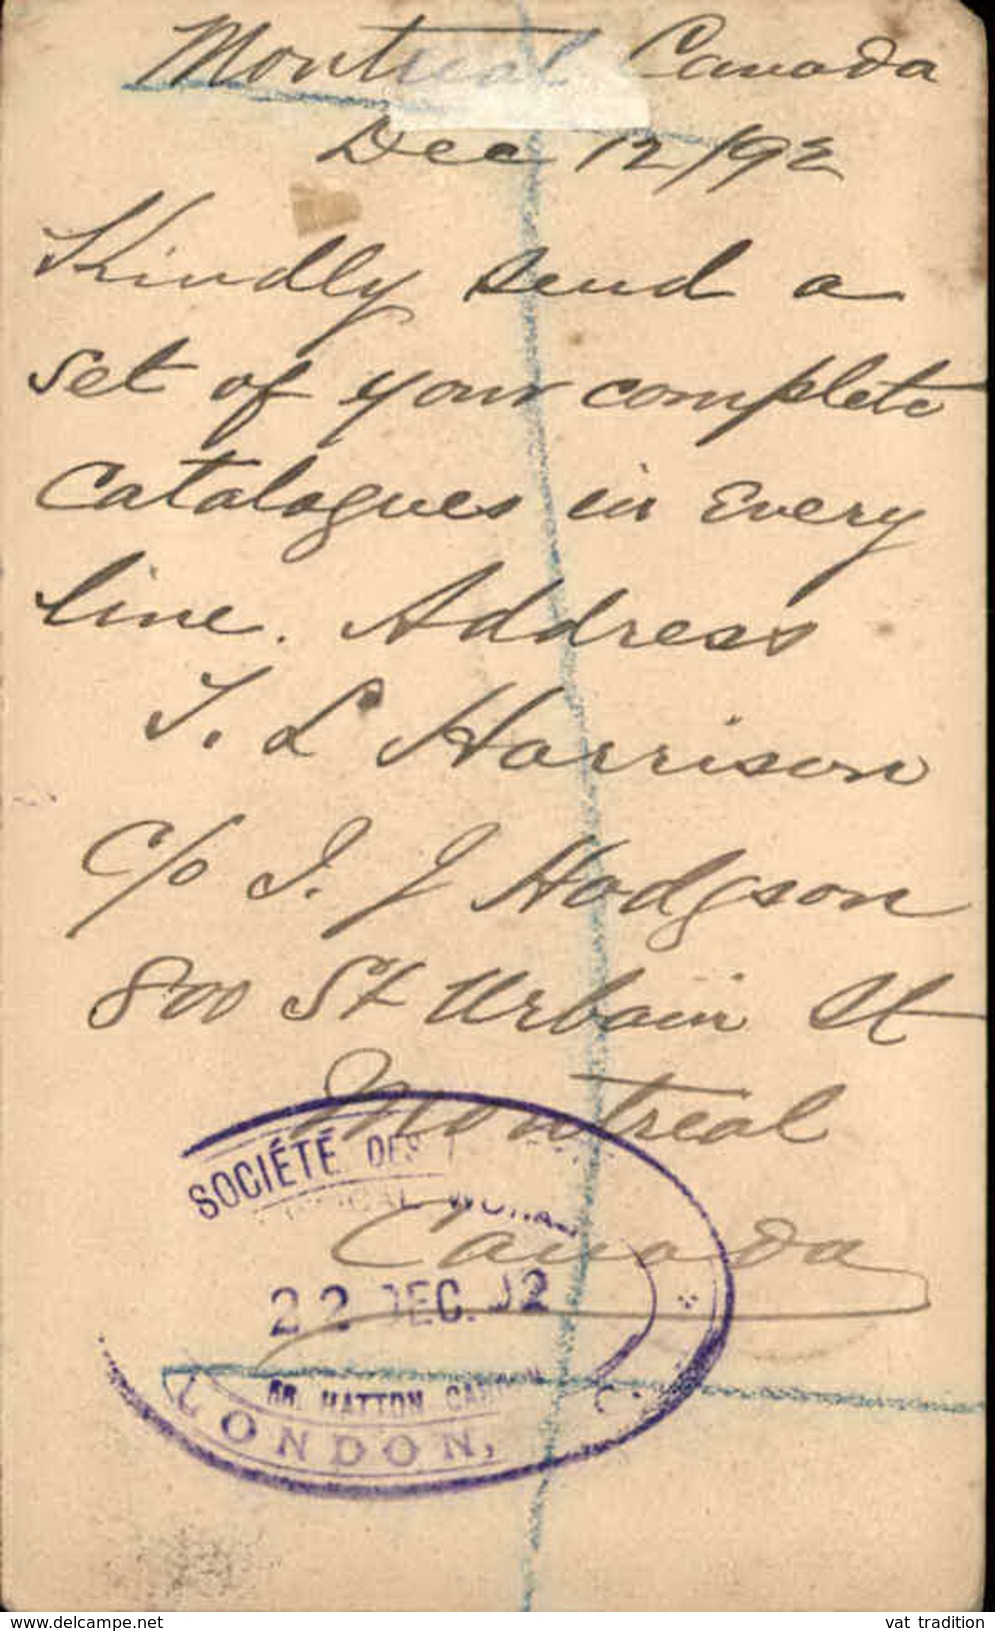 Montreal Canada
Dec 12/92
Kindly send a
set of your complete
catalogues in every
line. Address
T. L Harrison
c/o I. J Hodgson
800 St Urbain St
Montreal
SOCIÉTÉ DES
Canada
22 DEC. 92
HATTON GARDEN
LONDON,
www.delcampe.net
vat tradition